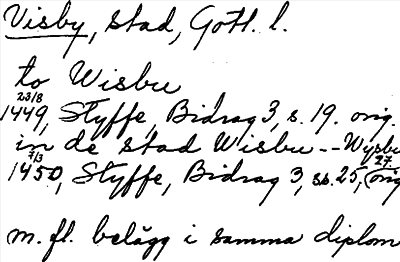 Visby, stad, Gotl. l.
to Wisbu
23/8
1449, Styffe, Bidrag 3, s. 19. orig.
in de stad Wisbu -- Wysbu
7/3 27.
1450, Styffe, Bidrag 3, ss. 25, (orig
m. fl. belägg i samma diplom